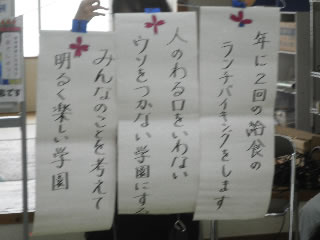 年に2回の給食の
ランチバイキングをします
人のわる口をいわない
ウソをつかない学園にする
みんなのことを考えて
明るく楽しい学園